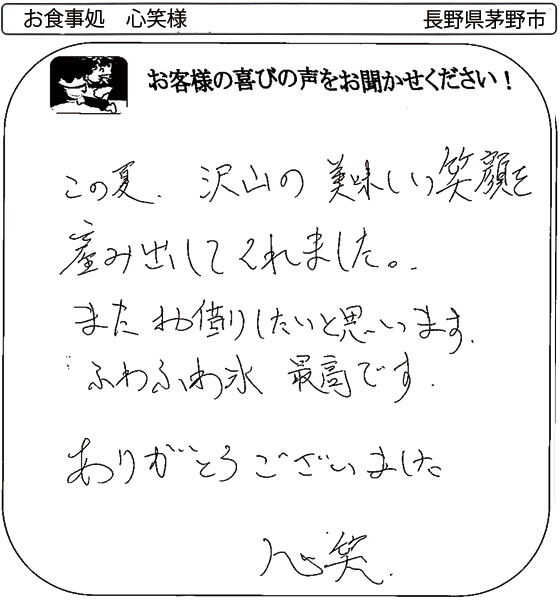 お食事処　心笑様　長野県茅野市
お客様の喜びの声をお聞かせください！
この夏、沢山の美味しい笑顔を
産み出してくれました。
またお借りしたいと思います。
ふわふわ氷　最高です。
ありがとうございました
心笑